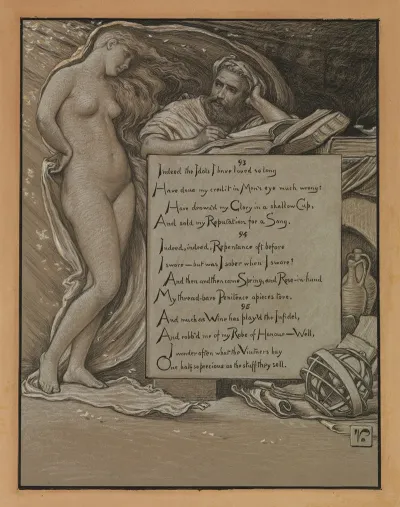 93
Indeed the Idols I have loved so long
Have done my credit in Men's eye much wrong:
Have drown'd my Glory in a shallow Cup,
And sold my Reputation for a Song.
94
Indeed, indeed, Repentance oft before
I swore—but was I sober when I swore?
And then and then came Spring, and Rose-in-hand
My thread-bare Penitence apieces tore.
95
And much as Wine has play'd the Infidel,
And robb'd me of my Robe of Honour—Well,
I wonder often what the Vintners buy
One half so precious as the stuff they sell.